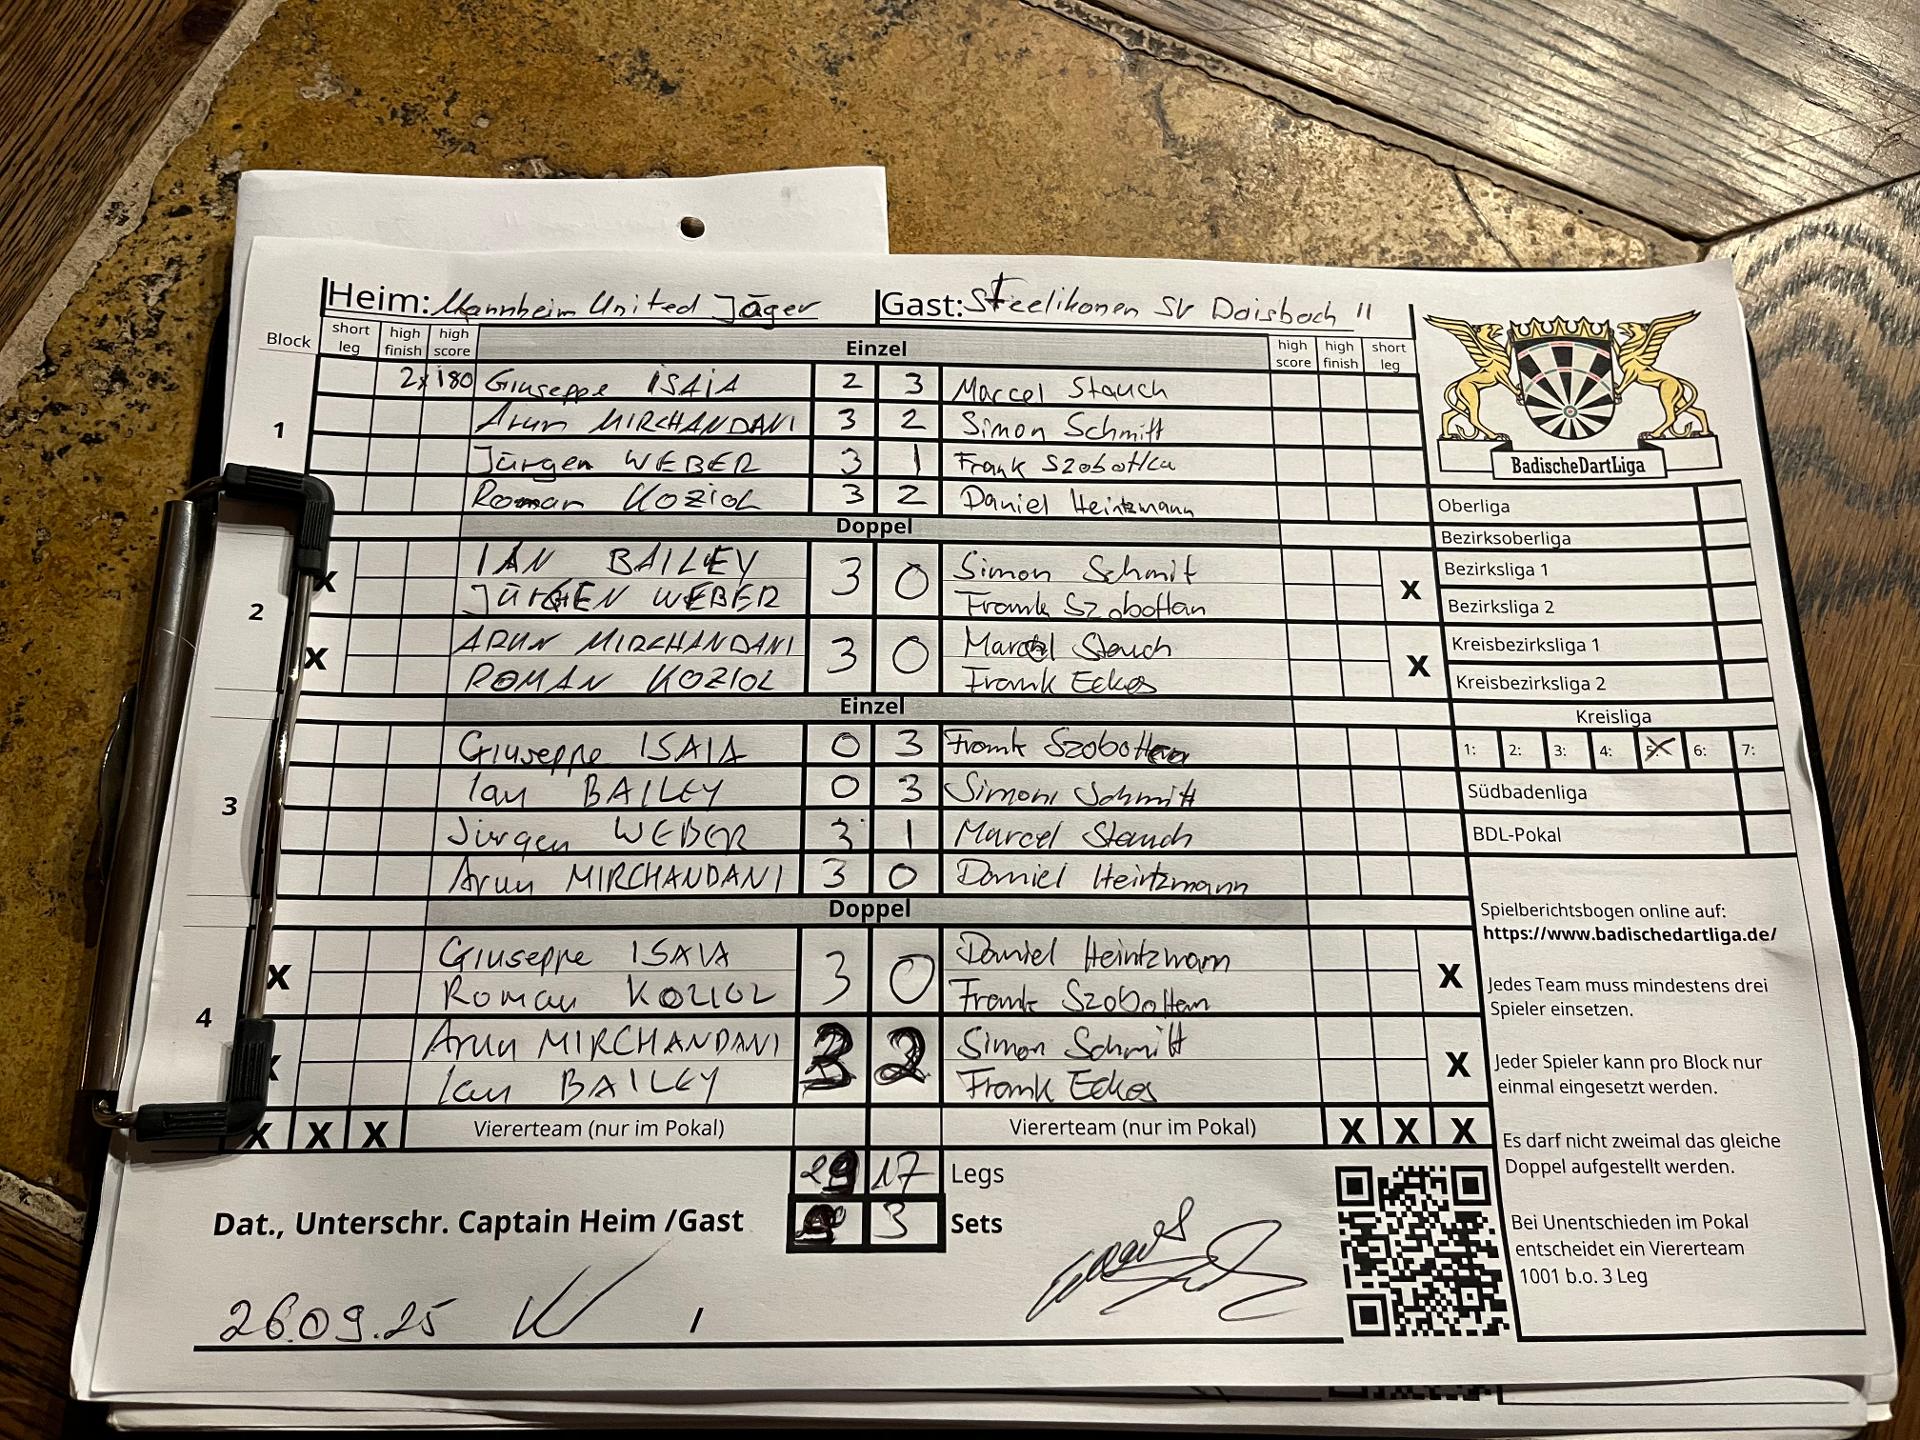 Heim: Mannheim United Jäger Gast: Steelikonen SV Daisbach II
Block short leg high finish high score Einzel high score high finish short leg
1
2x180 Giuseppe ISAIA 2 3 Marcel Stauch
Arun MIRCHANDANI 3 2 Simon Schmitt
Jürgen WEBER 3 1 Frank Szobotka
Roman KOZIOL 3 2 Daniel Heintzmann
Doppel
2
X IAN BAILEY 3 0 Simon Schmit X
JÜRGEN WEBER Frank Szobottan
X ARUN MIRCHANDANI 3 0 Marcel Stauch X
ROMAN KOZIOL Frank Eckes
Einzel
3
Giuseppe ISAIA 0 3 Frank Szobottka
Ian BAILEY 0 3 Simon Schmitt
Jürgen WEBER 3 1 Marcel Stauch
Arun MIRCHANDANI 3 0 Daniel Heintzmann
Doppel
4
X Giuseppe ISAIA 3 0 Daniel Heintzmann X
Roman KOZIOL Frank Szobottan
X Arun MIRCHANDANI 3 2 Simon Schmitt X
Ian BAILEY Frank Eckes
X X X Viererteam (nur im Pokal) Viererteam (nur im Pokal) X X X
29 17 Legs
Dat., Unterschr. Captain Heim /Gast 3 Sets
26.09.25
BadischeDartLiga
Oberliga
Bezirksoberliga
Bezirksliga 1
Bezirksliga 2
Kreisbezirksliga 1
Kreisbezirksliga 2
Kreisliga
1: 2: 3: 4: 5: 6: 7:
Südbadenliga
BDL-Pokal
Spielberichtsbogen online auf:
https://www.badischedartliga.de/
Jedes Team muss mindestens drei
Spieler einsetzen.
Jeder Spieler kann pro Block nur
einmal eingesetzt werden.
Es darf nicht zweimal das gleiche
Doppel aufgestellt werden.
Bei Unentschieden im Pokal
entscheidet ein Viererteam
1001 b.o. 3 Leg